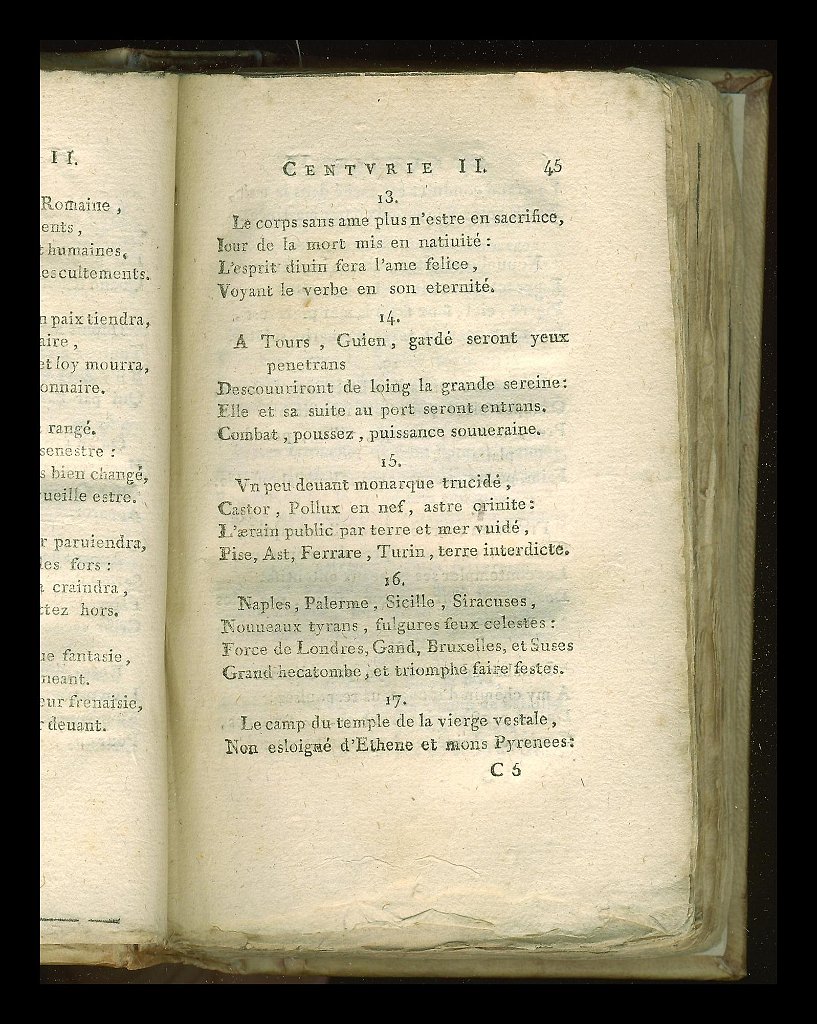 II.
Romaine ,
ents ,
thumaines.
escultements.
n paix tiendra,
aire ,
et loy mourra,
onnaire.
rangé.
senestre :
s bien changé,
ueille estre.
r paruiendra,
les fors :
craindra ,
ctez hors.
ue fantasie,
neant.
eur frenaisie,
r deuant.
CENTVRIE II. 45
13.
Le corps sans ame plus n'estre en sacrifice,
Iour de la mort mis en natiuité :
L'esprit diuin fera l'ame felice ,
Voyant le verbe en son eternité.
14.
A Tours , Guien, gardé seront yeux
penetrans
Descouuriront de loing la grande sereine:
Elle et sa suite au port seront entrans.
Combat , poussez , puissance souueraine.
15.
Vn peu deuant monarque trucidé ,
Castor , Pollux en nef, astre crinite:
L'ærain public par terre et mer vuidé ,
Pise, Ast, Ferrare , Turin , terre interdicte.
16.
Naples, Palerme , Sicille , Siracuses ,
Nouueaux tyrans , fulgures feux celestes :
Force de Londres, Gand, Bruxelles, et Suses
Grand hecatombe , et triomphe faire festes.
17.
Le camp du temple de la vierge vestale ,
Non esloigné d'Ethene et mons Pyrenees:
C 5